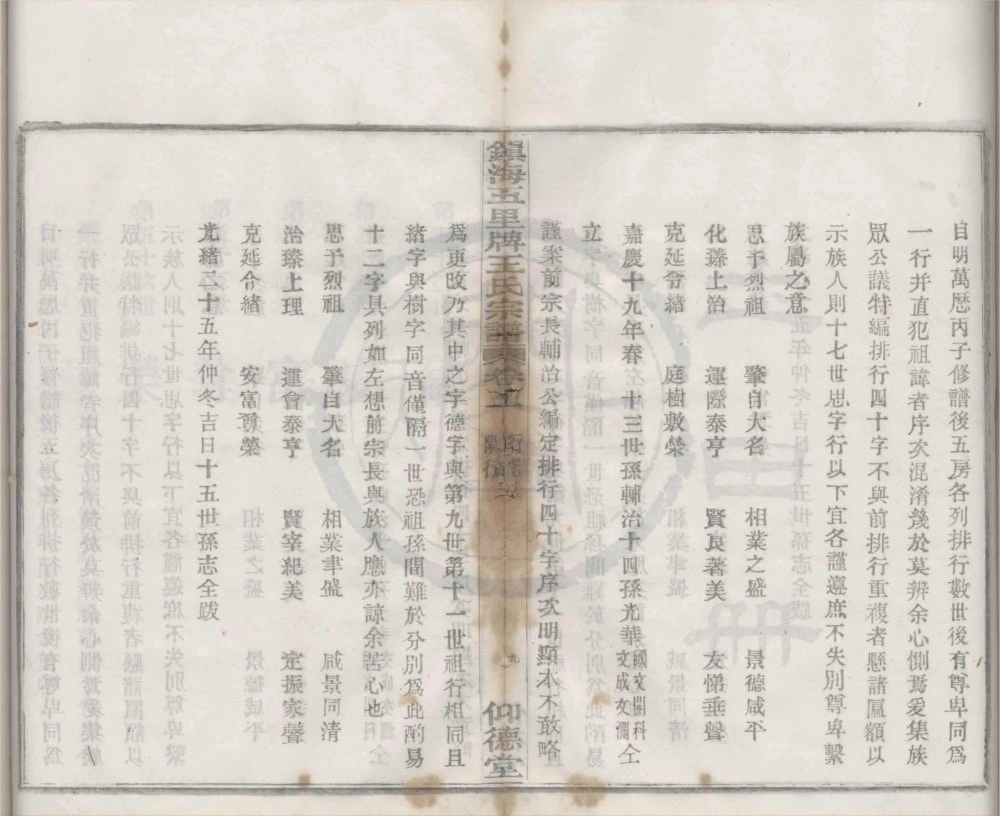 自明萬厯丙子修譜後五房各列排行數世後有尊卑同爲
一行并直犯祖諱者序次混淆幾於莫辨余心惻焉爰集族
眾公議特編排行四十字不與前排行重複者懸諸匾額以
示族人則十七世思字行以下宜各謹遵庶不失別尊卑繫
族屬之意
思予烈祖 肇自大名 相業之盛 景德咸平
化臻上治 運際泰亨 賢良著美 友悌垂聲
克延令緒 庭樹敷榮
嘉慶十九年春 十三世孫輔治十四孫光華國文開科文成文瀾仝
立
謹案前宗長輔治公編定排行四十字序次明顯本不敢略
爲更改乃其中之字德字與第九世第十一世祖行相同且
緒字與樹字同音僅隔一世恐祖孫間難於分別爲此酌易
十二字具列如左想前宗長與族人應亦諒余苦心也
思予烈祖 肇自大名 相業聿盛 咸景同清
治臻上理 運會泰亨 賢宰紀美 定振家聲
克延令緒 安富尊榮
光緒二十五年仲冬吉日十五世孫志全跋
鎮海五里牌王氏宗譜 卷 九 仰德堂